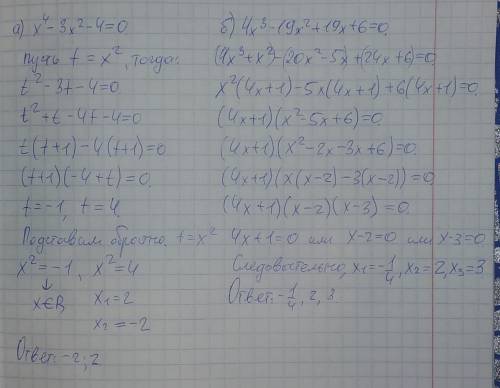 а) x⁴-3x²-4=0
пусть t=x², тогда:
t²-3t-4=0
t²+t-4t-4=0
t(t+1)-4(t+1)=0
(t+1)(-4+t)=0.
t=-1, t=4.
Подставим обратно t=x²
x²=-1, x²=4
↓
x∈R x₁=2
x₂=-2
Ответ: -2; 2
б) 4x³-19x²+19x+6=0.
(4x³+x²)-(20x²-5x)+(24x+6)=0
x²(4x+1)-5x(4x+1)+6(4x+1)=0
(4x+1)(x²-5x+6)=0.
(4x+1)(x²-2x-3x+6)=0.
(4x+1)(x(x-2)-3(x-2))=0
(4x+1)(x-2)(x-3)=0.
4x+1=0 или x-2=0 или x-3=0.
Следовательно, x₁=-1/4, x₂=2, x₃=3
Ответ: -1/4, 2, 3.